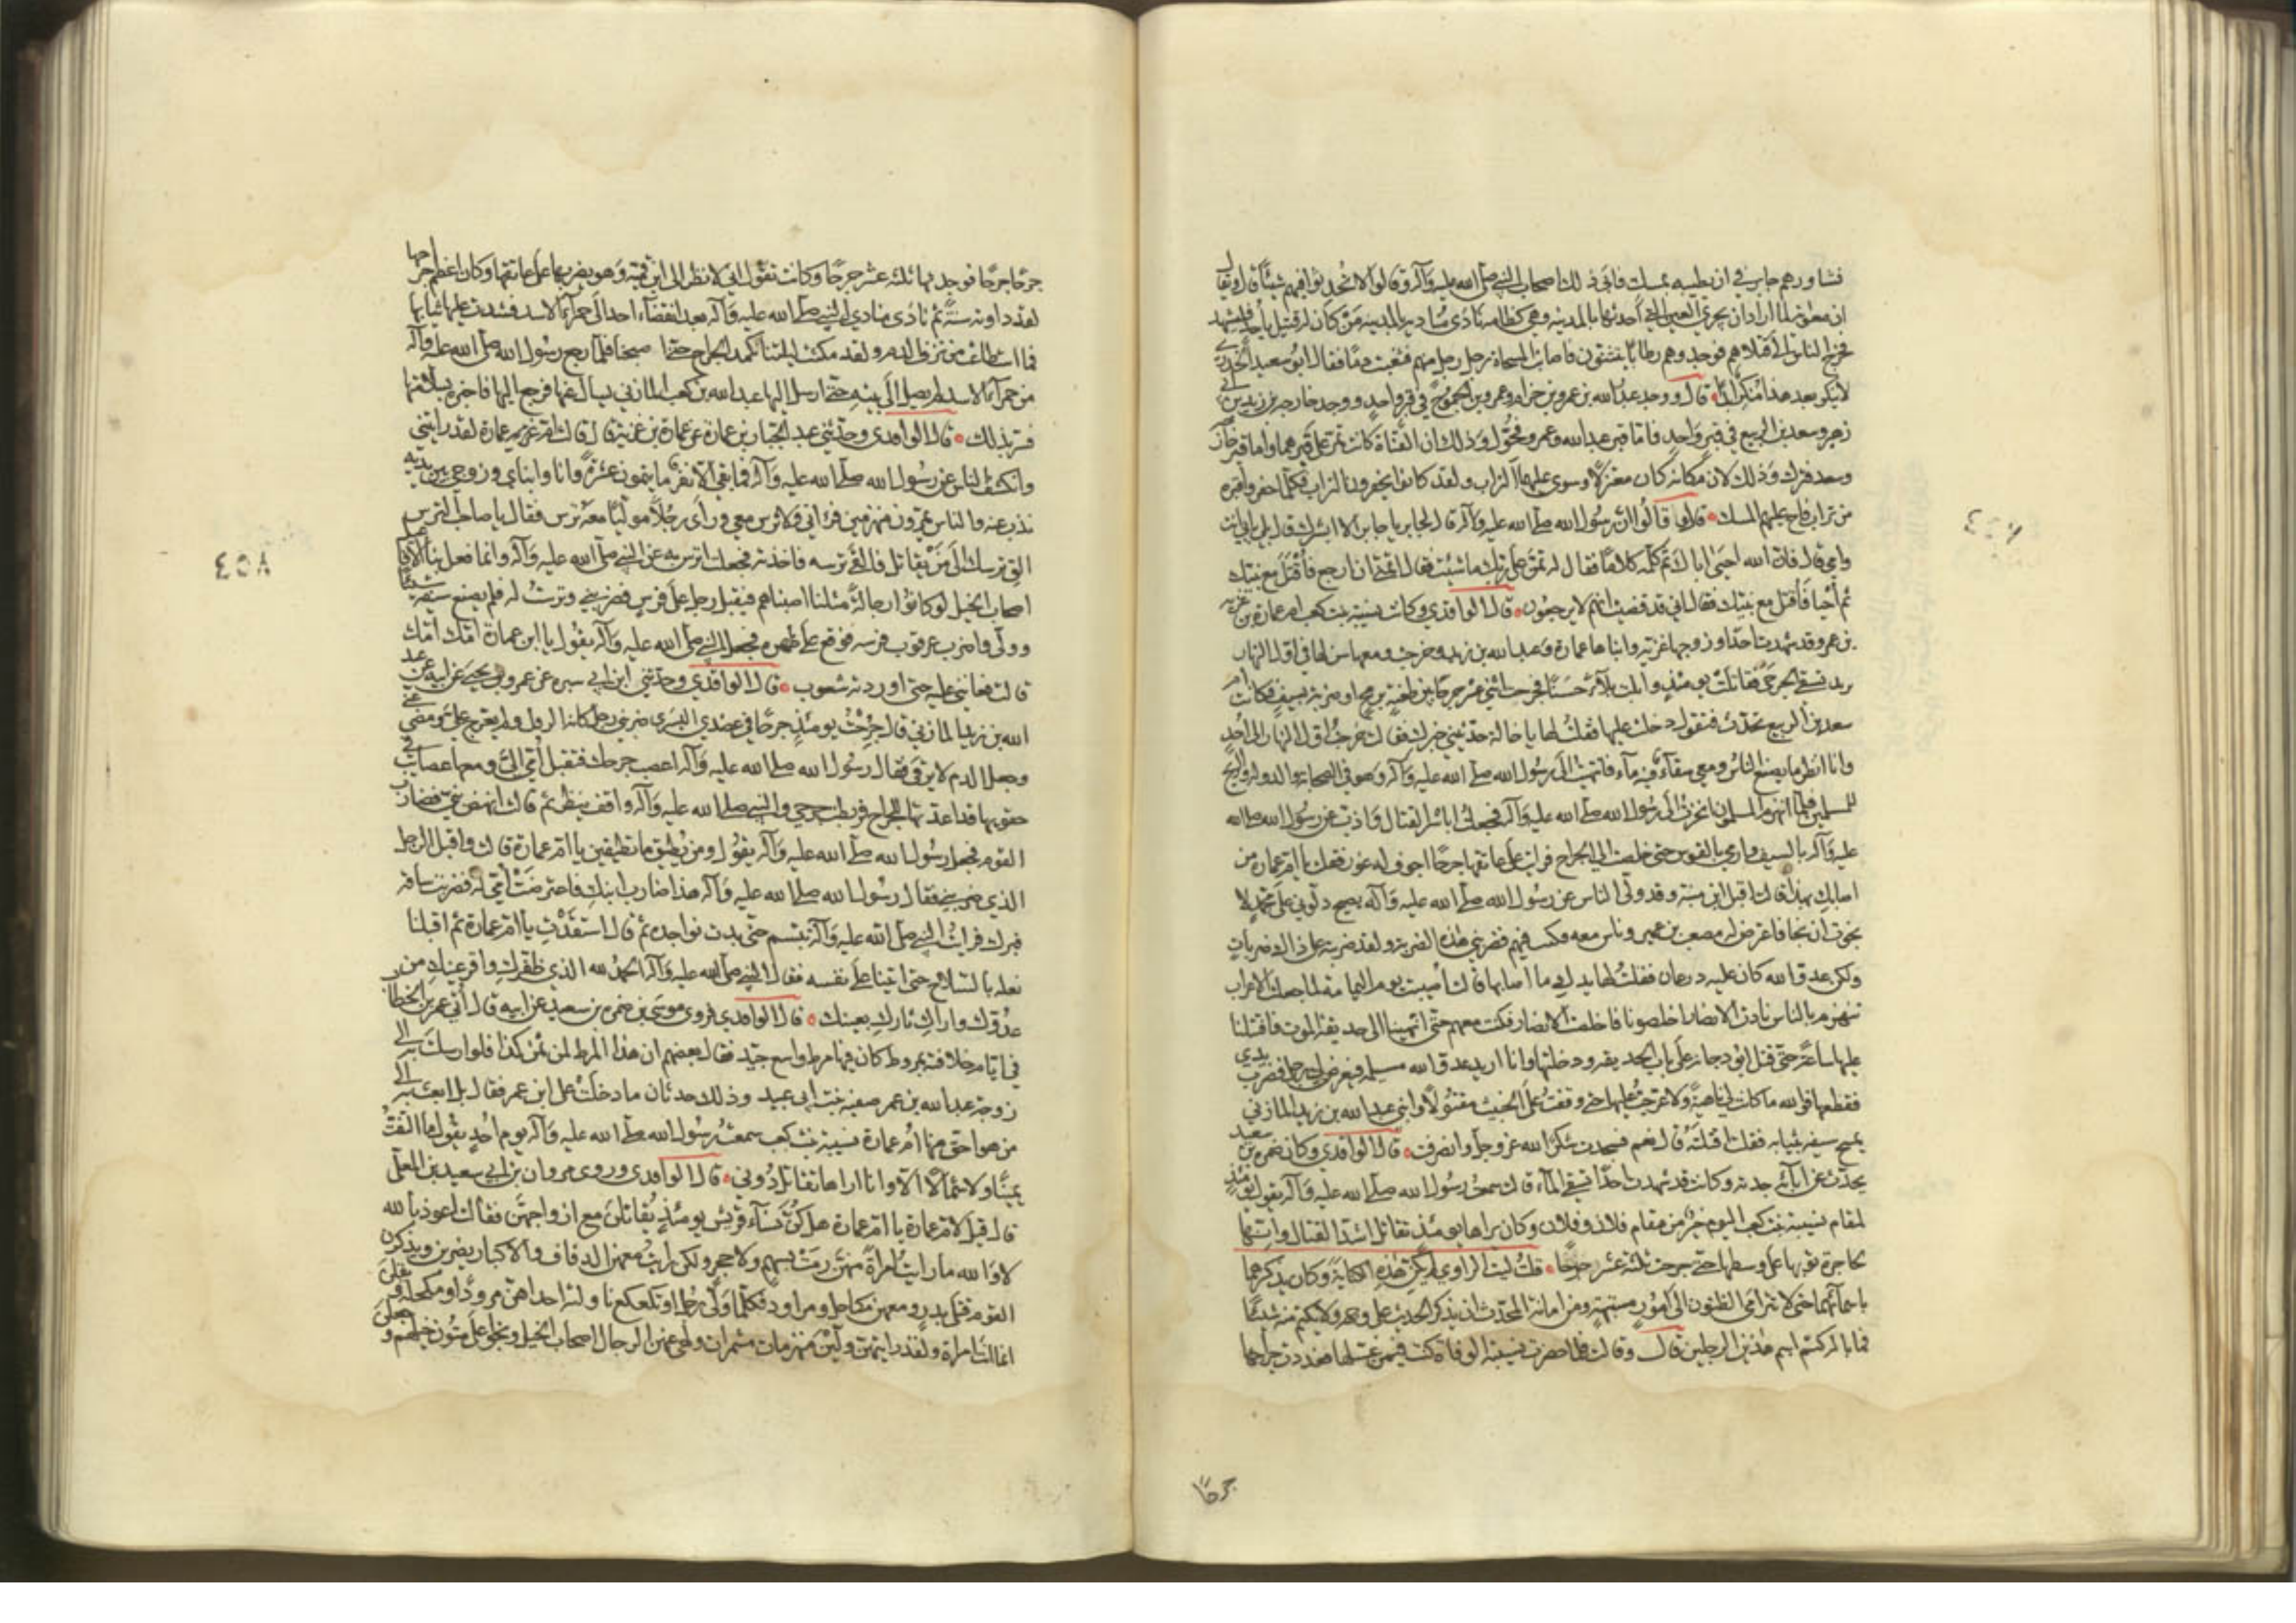 فشاورهم جابر في ان يطيبه بمسك فابى ذلك اصحاب النبي صلى الله عليه وآله وقالوا لا تحدثوا فيهم شيئا قال ويقال
ان معوية لما اراد ان يجري العين التي أحدثها بالمدينة وهي كظامة نادى مناديه بالمدينة من كان له قتيل بأحد فليشهد
فخرج الناس الى قتلاهم فوجدوهم رطابا يتثنون فاصابت المسحاة رجل رجل منهم فثعبت دما فقال ابو سعيد الخدري
لا ينكر بعد هذا منكر ابدا قال ووجد عبد الله بن عمرو بن حرام وعمرو بن الجموح في قبر واحد ووجد خارجة بن زيد بن ابي
زهير وسعد بن الربيع في قبر واحد فاما قبر عبد الله وعمرو فحول وذلك ان القناة كانت تمر على قبرهما واما قبر خارجة
وسعد فترك وذلك لان مكانه كان معتزلا وسوي عليهما التراب ولقد كانوا يحفرون التراب فكلما حفروا قترة
من تراب فاح عليهم المسك قال وقالوا ان رسول الله صلى الله عليه وآله قال لجابر يا جابر الا ابشرك قال بلى بابي انت
وامي قال فان الله احيى اباك ثم كلمه كلاما فقال له تمن على ربك ما شئت فقال اتمنى ان ارجع فأقتل مع نبيك
ثم أحيا فأقتل مع نبيك فقال اني قد قضيت انهم لا يرجعون قال الواقدي وكانت نسيبة بنت كعب ام عمارة بن غزية
بن عمرو قد شهدت احدا وزوجها غزية وابناها عمارة وعبد الله بن زيد وخرجت ومعها شن لها في اول النهار
تريد تسقي الجرحى فقاتلت يومئذ وابلت بلآء حسنا فجرحت اثني عشر جرحا بين طعنة برمح او ضربة بسيف فكانت ام
سعد بنت الربيع تحدث فتقول دخلت عليها فقلت لها يا خالة حدثيني خبرك فقالت خرجت اول النهار الى احد
وانا انظر ما يصنع الناس ومعي سقآء فيه مآء فانتهيت الى رسول الله صلى الله عليه وآله وهو في الصحابة والدولة والريح
للمسلمين فلما انهزم المسلمون انحزت الى رسول الله صلى الله عليه وآله فجعلت اباشر القتال واذب عن رسول الله صلى الله
عليه وآله بالسيف وارمي بالقوس حتى خلصت الي الجراح فرايت على عاتقها جرحا اجوف له غور فقلت يا ام عمارة من
اصابك بهذا قالت اقبل ابن قمئة وقد ولى الناس عن رسول الله صلى الله عليه وآله يصيح دلوني على محمد لا
نجوت ان نجا فاعترض له مصعب بن عمير وناس معه فكنت فيهم فضربني هذه الضربة ولقد ضربته على ذلك ضربات
ولكن عدو الله كان عليه درعان فقلت لها يدك ما اصابها قالت أصيبت يوم اليمامة لما جعلت الاعراب
تنهزم بالناس نادت الانصار اخلصونا فاخلصت الانصار فكنت معهم حتى انتهينا الى حديقة الموت فاقتتلنا
عليها ساعة حتى قتل ابو دجانة على باب الحديقة ودخلتها وانا اريد عدو الله مسيلمة فيعرض لي رجل فضرب يدي
فقطعها فوالله ما كانت لي ناهية ولا عرجت عليها حتى وقفت على الخبيث مقتولا وابني عبد الله بن زيد المازني
يمسح سيفه بثيابه فقلت اقتلته قال نعم فسجدت شكرا لله عز وجل وانصرفت قال الواقدي وكان ضمرة بن سعيد
يحدث عن ابآئه عن جدته وكانت قد شهدت احدا تسقي المآء قالت سمعت رسول الله صلى الله عليه وآله يقول يومئذ
لمقام نسيبة بنت كعب اليوم خير من مقام فلان وفلان وكان يراها يومئذ تقاتل اشد القتال وانها
لحاجزة ثوبها على وسطها حتى جرحت ثلثة عشر جرحا قلت ليت الراوي لم يكن هذه الكناية وكان يذكرهما
باسمآئهما حتى لا تترامى الظنون الى أمور مشتبهة ومن امانة المحدث ان يذكر الحديث على وجهه ولا يكتم منه شيئا
فما باله كتم اسم هذين الرجلين قال وقالت فلما حضرت نسيبة الوفاة كنت فيمن غسلها فعددت جراحها
جرحا
جرحا جرحا فوجد بها ثلثة عشر جرحا وكانت تقول اني لانظر الى ابن قمئة وهو يضربها على عاتقها وكان اعظم جراحها
لقد داوته سنة ثم نادى منادي النبي صلى الله عليه وآله بعد انقضآء احد الى حمرآء الاسد فشدت عليها ثيابها
فما استطاعت من نزف الدم ولقد مكثت ليلتنا نكمد الجراح حتى اصبحنا فلما رجع رسول الله صلى الله عليه وآله
من حمرآء الاسد لم يصل الى بيته حتى ارسل اليها عبد الله بن كعب المازني يسأل عنها فرجع اليه فاخبره بسلامتها
فسر بذلك قال الواقدي وحدثني عبد الجبار بن عمارة عن عمارة بن غزية قال قالت ام عمارة لقد رايتني
وانكشف الناس عن رسول الله صلى الله عليه وآله فما بقي الا نفر ما يتمون عشرة وانا وابناي وزوجي بين يديه
نذب عنه والناس يمرون منهزمين فرآني ولا ترس معي ورأى رجلا موليا معه ترس فقال يا صاحب الترس
الق ترسك الى من يقاتل فالقى ترسه فاخذته فجعلت اترس به عن النبي صلى الله عليه وآله وانما فعل بنا الافاعيل
اصحاب الخيل لو كانوا رجالة مثلنا اصبناهم فيقبل رجل على فرس فضربني وترست له فلم يصنع سيفه شيئا
وولى فاضرب عرقوب فرسه فوقع على ظهره فجعل النبي صلى الله عليه وآله يقول يا ابن عمارة امك امك
قالت فعانني عليه حتى اوردته شعوب قال الواقدي وحدثني ابن ابي سبره عن عمرو بن يحيى عن ابيه عن عبد
الله بن زيد المازني قال جرحت يومئذ جرحا في عضدي اليسرى ضربني رجل كانه الرقل ولم يعرج علي ومضى عني
وجعل الدم لا يرقى فقال رسول الله صلى الله عليه وآله اعصب جرحك فتقبل أمي الي ومعها عصايب في
حقويها قد اعدتها للجراح فربطت جرحي والنبي صلى الله عليه وآله واقف ينظر ثم قالت انهض يا بني فضارب
القوم فجعل رسول الله صلى الله عليه وآله يقول ومن يطيق ما تطيقين يا ام عمارة قالت واقبل الرجل
الذي ضربني فقال رسول الله صلى الله عليه وآله هذا ضارب ابنك فاعترضت أمي له فضربت ساقه
فبرك فرايت النبي صلى الله عليه وآله تبسم حتى بدت نواجده ثم قال استقدت يا ام عمارة ثم اقبلنا
نعله بالسلاح حتى اتينا على نفسه فقال النبي صلى الله عليه وآله الحمد لله الذي ظفرك واقر عينك من
عدوك واراك ثارك بعينك قال الواقدي وروى موسى بن ضمرة بن سعيد عن ابيه قال أتي عمر بن الخطاب
في ايام خلافته بمروط كان فيها مرط واسع جيد فقال بعضهم ان هذا المرط لمن ثمن كذا فلو ارسلت به الى
زوجة عبد الله بن عمر صفية بنت ابي عبيد وذلك حدثان ما دخلت على ابن عمر فقال بل ابعث به الى
من هو احق منها ام عمارة نسيبة بنت كعب سمعت رسول الله صلى الله عليه وآله يوم احد يقول ما التفت
يمينا ولا شمالا الا وانا اراها تقاتل دوني قال الواقدي وروى مروان بن ابي سعيد بن المعلى
قال قيل لام عمارة يا ام عمارة هل كن نسآء قريش يومئذ يقاتلن مع ازواجهن فقالت اعوذ بالله
لا والله ما رايت امرأة منهن رمت بسهم ولا حجر ولكن رايت معهن الدفاف والاكبار يضربن ويذكرن
القوم قتلى بدر ومعهن مكاحل ومراود فكلما ولى رجل او تكعكع ناولته احداهن مرودا ومكحلة ويقلن
انما انت امرأة ولقد رايتهن ولين منهزمات مشمرات ولهى عنهن الرجال اصحاب الخيل ونجوا على متون خيلهم وجعلن
٤٥٨